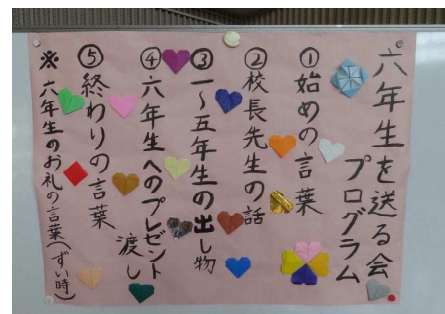 六年生を送る会
プログラム
①始めの言葉
②校長先生の話
③一~五年生の出し物
④六年生へのプレゼント
渡し
⑤終わりの言葉
※六年生のお礼の言葉(ずい時)